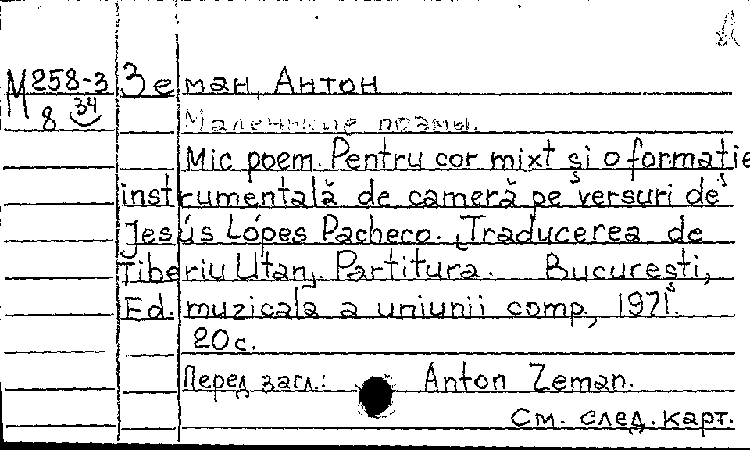 М 258-3 Земан, Антон
8 34 Маленькие поэмы.
Mic poem. Pentru cor mixt și o formație
instrumentală de cameră pe versuri de
Jesús Lópes Pacheco. [Traducerea de
Tiberiu Utan]. Partitura. București,
Ed. muzicală a uniunii comp., 1971.
20 с.
Перед загл.: Anton Zeman.
См. след. карт.